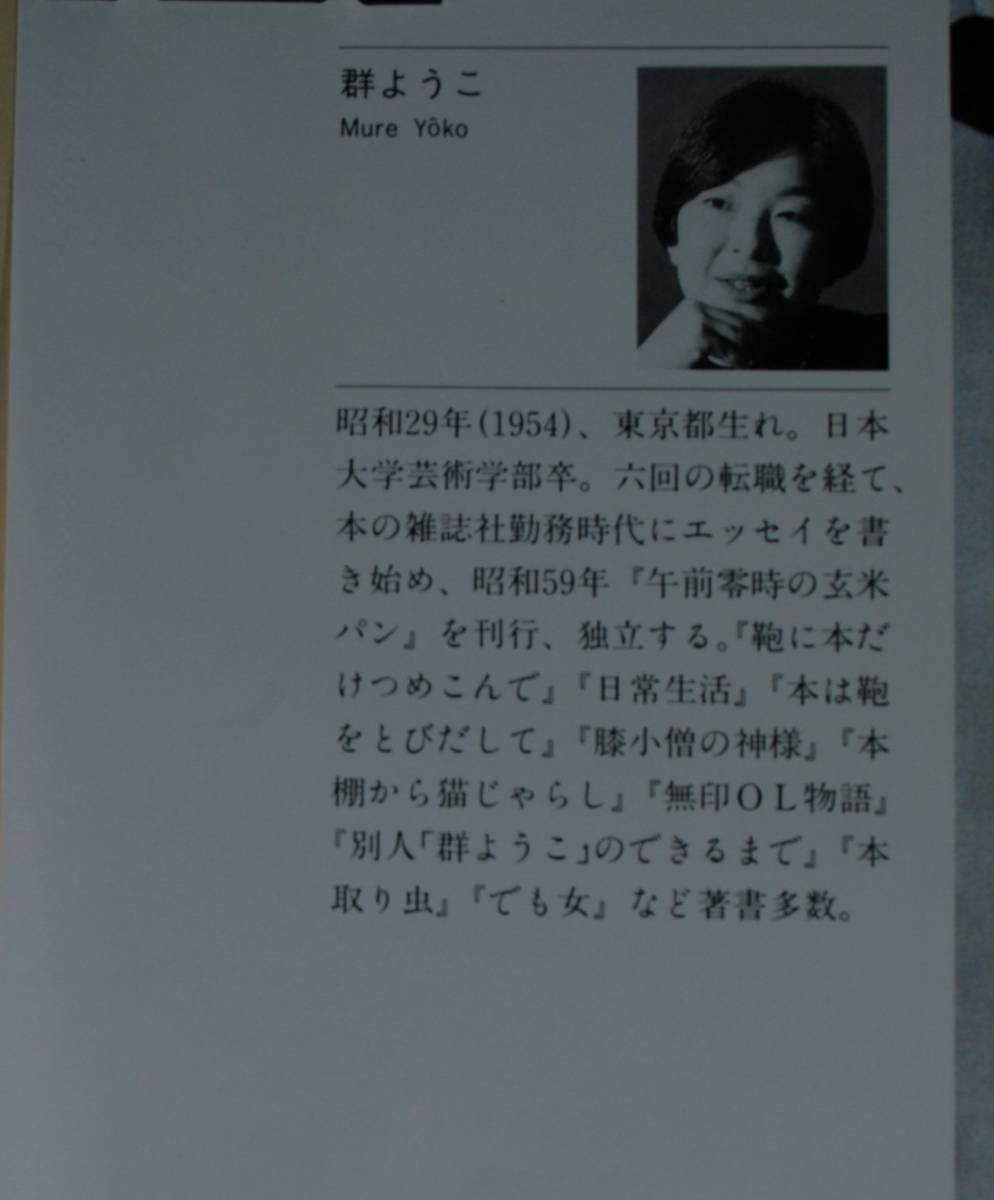 群ようこ
Mure Yôko
昭和29年(1954)、東京都生れ。日本
大学芸術学部卒。六回の転職を経て、
本の雑誌社勤務時代にエッセイを書
き始め、昭和59年『午前零時の玄米
パン』を刊行、独立する。『鞄に本だ
けつめこんで』『日常生活』『本は鞄
をとびだして』『膝小僧の神様』『本
棚から猫じゃらし』『無印ＯＬ物語』
『別人「群ようこ」のできるまで』『本
取り虫』『でも女』など著書多数。